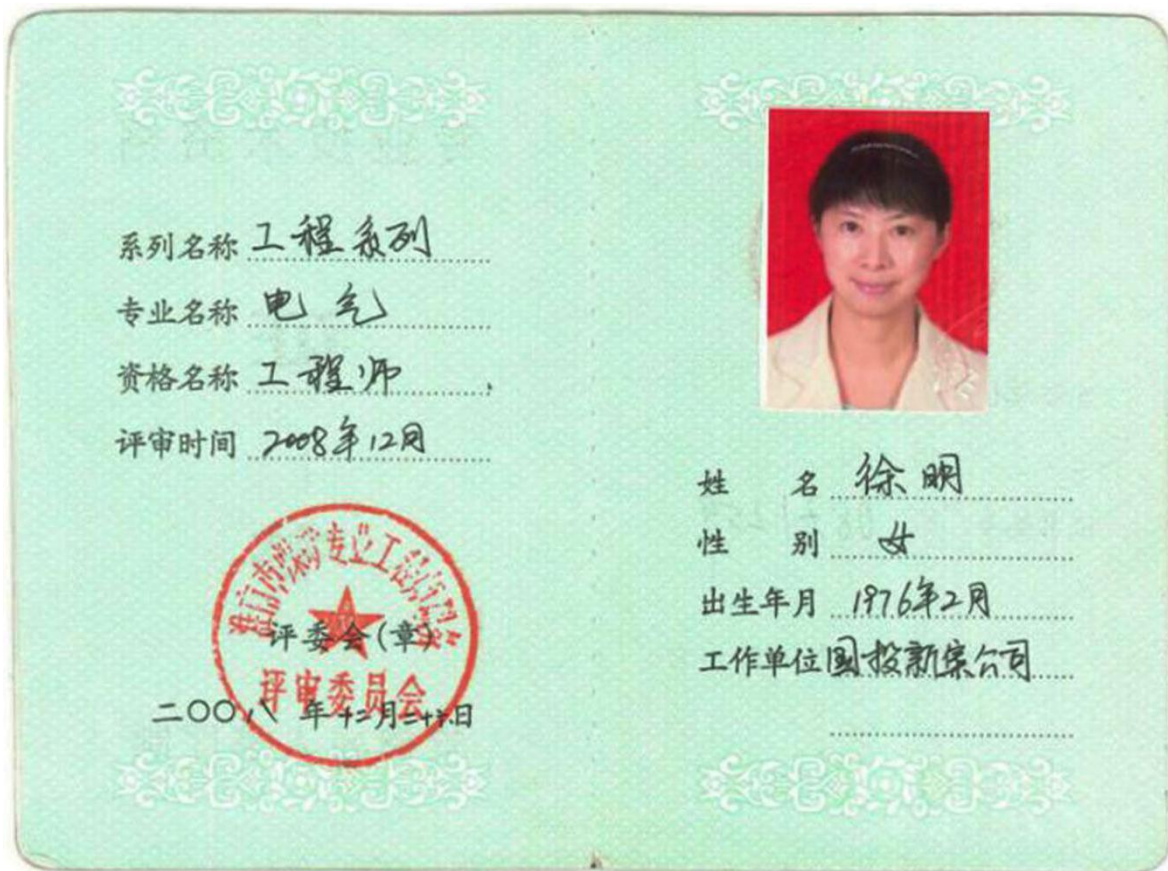 系列名称 工程系列
专业名称 电气
资格名称 工程师
评审时间 2008年12月
淮南市煤矿专业工程师
评委会(章)
评审委员会
二〇〇八年十二月二十 日
姓 名 徐明
性 别 女
出生年月 1976年2月
工作单位 国投新集公司